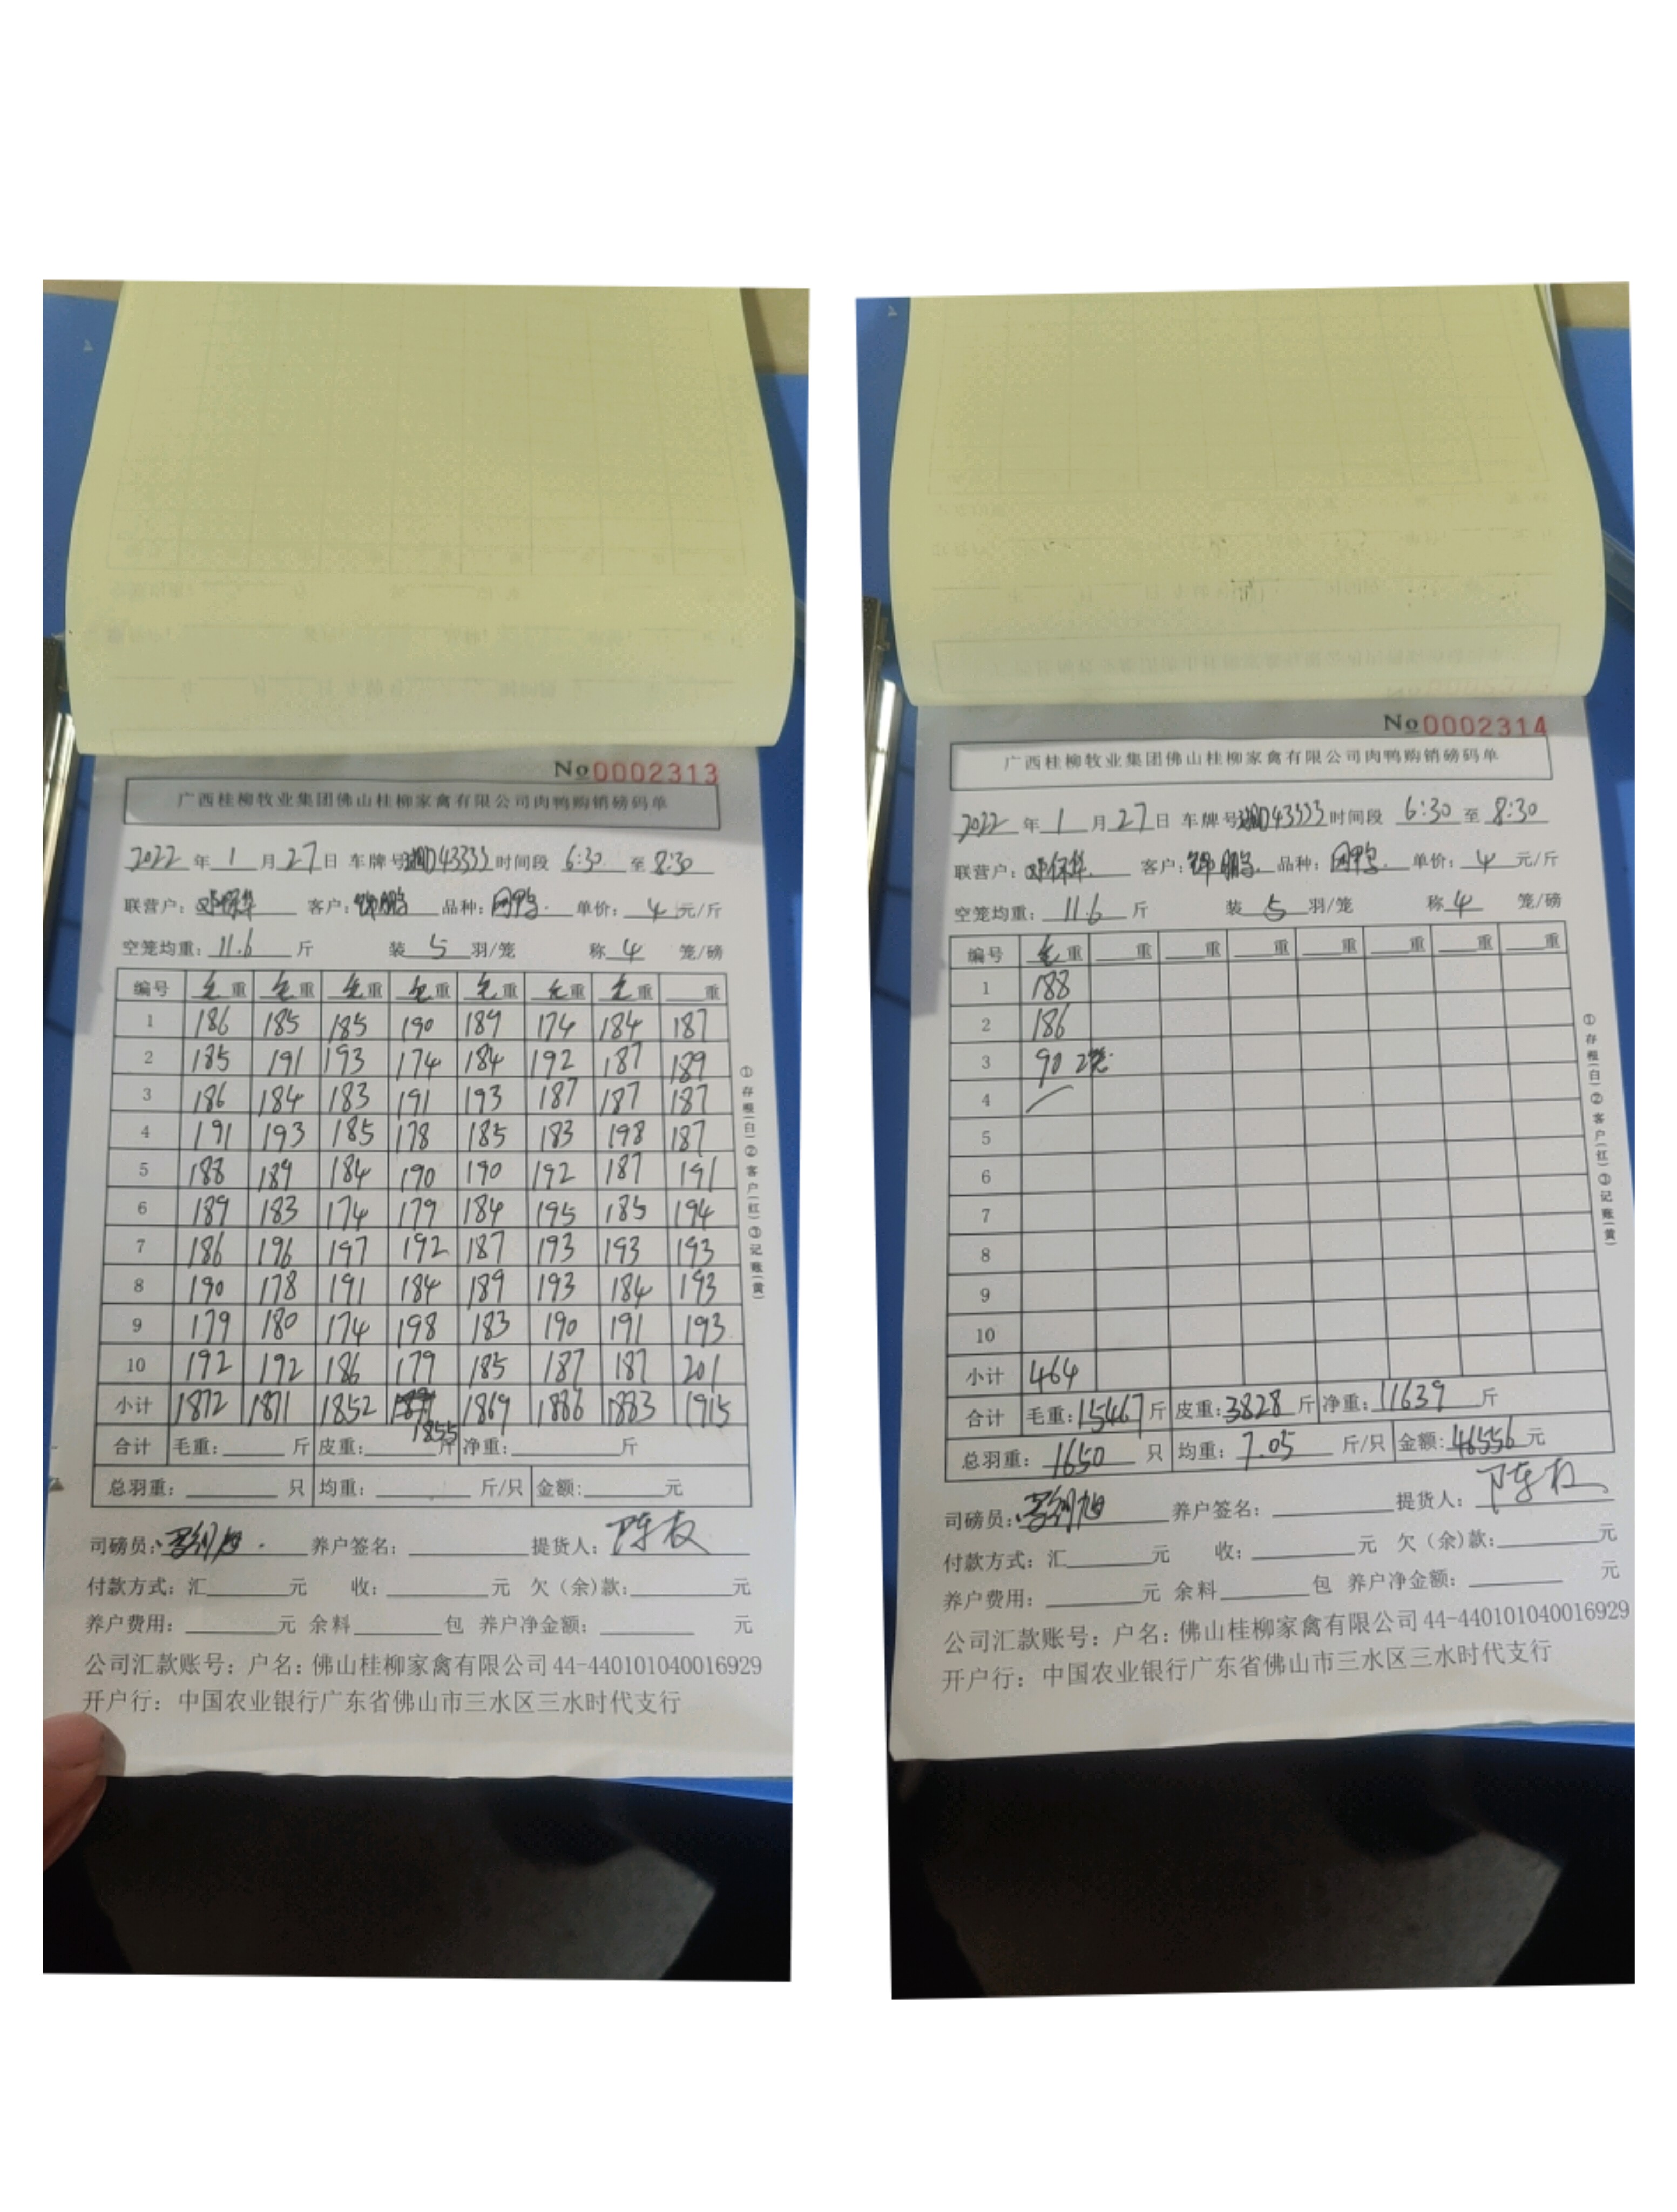 No 0002313
广西桂柳牧业集团佛山桂柳家禽有限公司肉鸭购销磅码单
2022 年 1 月 27 日 车牌号 湘D43333 时间段 6:30 至 8:30
联营户: 邓保华 客户: 鹏 品种: 肉鸭 单价: 4 元/斤
空笼均重: 11.6 斤 装 5 羽/笼 称 4 笼/磅
编号 毛重 毛重 毛重 毛重 毛重 毛重 毛重 重
1 186 185 185 190 189 174 184 187
2 185 191 193 174 184 192 187 189
3 186 184 183 191 193 187 187 187
4 191 193 185 178 185 183 198 187
5 188 189 184 190 190 192 187 191
6 189 183 174 179 184 195 185 194
7 186 196 197 192 187 193 193 193
8 190 178 191 184 189 193 184 193
9 179 180 174 198 183 190 191 193
10 192 192 186 179 185 187 187 201
小计 1872 1871 1852 1855 1869 1886 1883 1915
合计 毛重: 斤 皮重: 斤 净重: 斤
总羽重: 只 均重: 斤/只 金额: 元
司磅员: 养户签名: 提货人: 陈友
付款方式: 汇 元 收: 元 欠(余)款: 元
养户费用: 元 余料 包 养户净金额: 元
公司汇款账号: 户名: 佛山桂柳家禽有限公司 44-440101040016929
开户行: 中国农业银行广东省佛山市三水区三水时代支行
①存根(白)②客户(红)③记账(黄)
No 0002314
广西桂柳牧业集团佛山桂柳家禽有限公司肉鸭购销磅码单
2022 年 1 月 27 日 车牌号 湘D43333 时间段 6:30 至 8:30
联营户: 邓保华 客户: 鹏 品种: 肉鸭 单价: 4 元/斤
空笼均重: 11.6 斤 装 5 羽/笼 称 4 笼/磅
编号 毛重 重 重 重 重 重 重 重
1 188
2 186
3 90 2笼
4
5
6
7
8
9
10
小计 464
合计 毛重: 15467 斤 皮重: 3828 斤 净重: 11639 斤
总羽重: 1650 只 均重: 7.05 斤/只 金额: 46556 元
司磅员: 养户签名: 提货人: 陈友
付款方式: 汇 元 收: 元 欠(余)款: 元
养户费用: 元 余料 包 养户净金额: 元
公司汇款账号: 户名: 佛山桂柳家禽有限公司 44-440101040016929
开户行: 中国农业银行广东省佛山市三水区三水时代支行
①存根(白)②客户(红)③记账(黄)